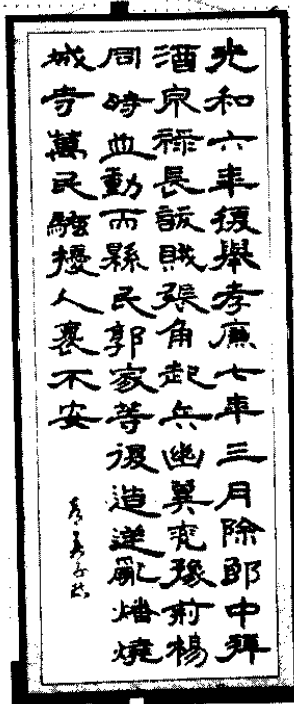 光和六年復舉孝廉七年三月除郎中拜
酒泉祿長訞賊張角起兵幽冀兗豫荊楊
同時並動而縣民郭家等復造逆亂燔燒
城寺萬民騷擾人裹不安